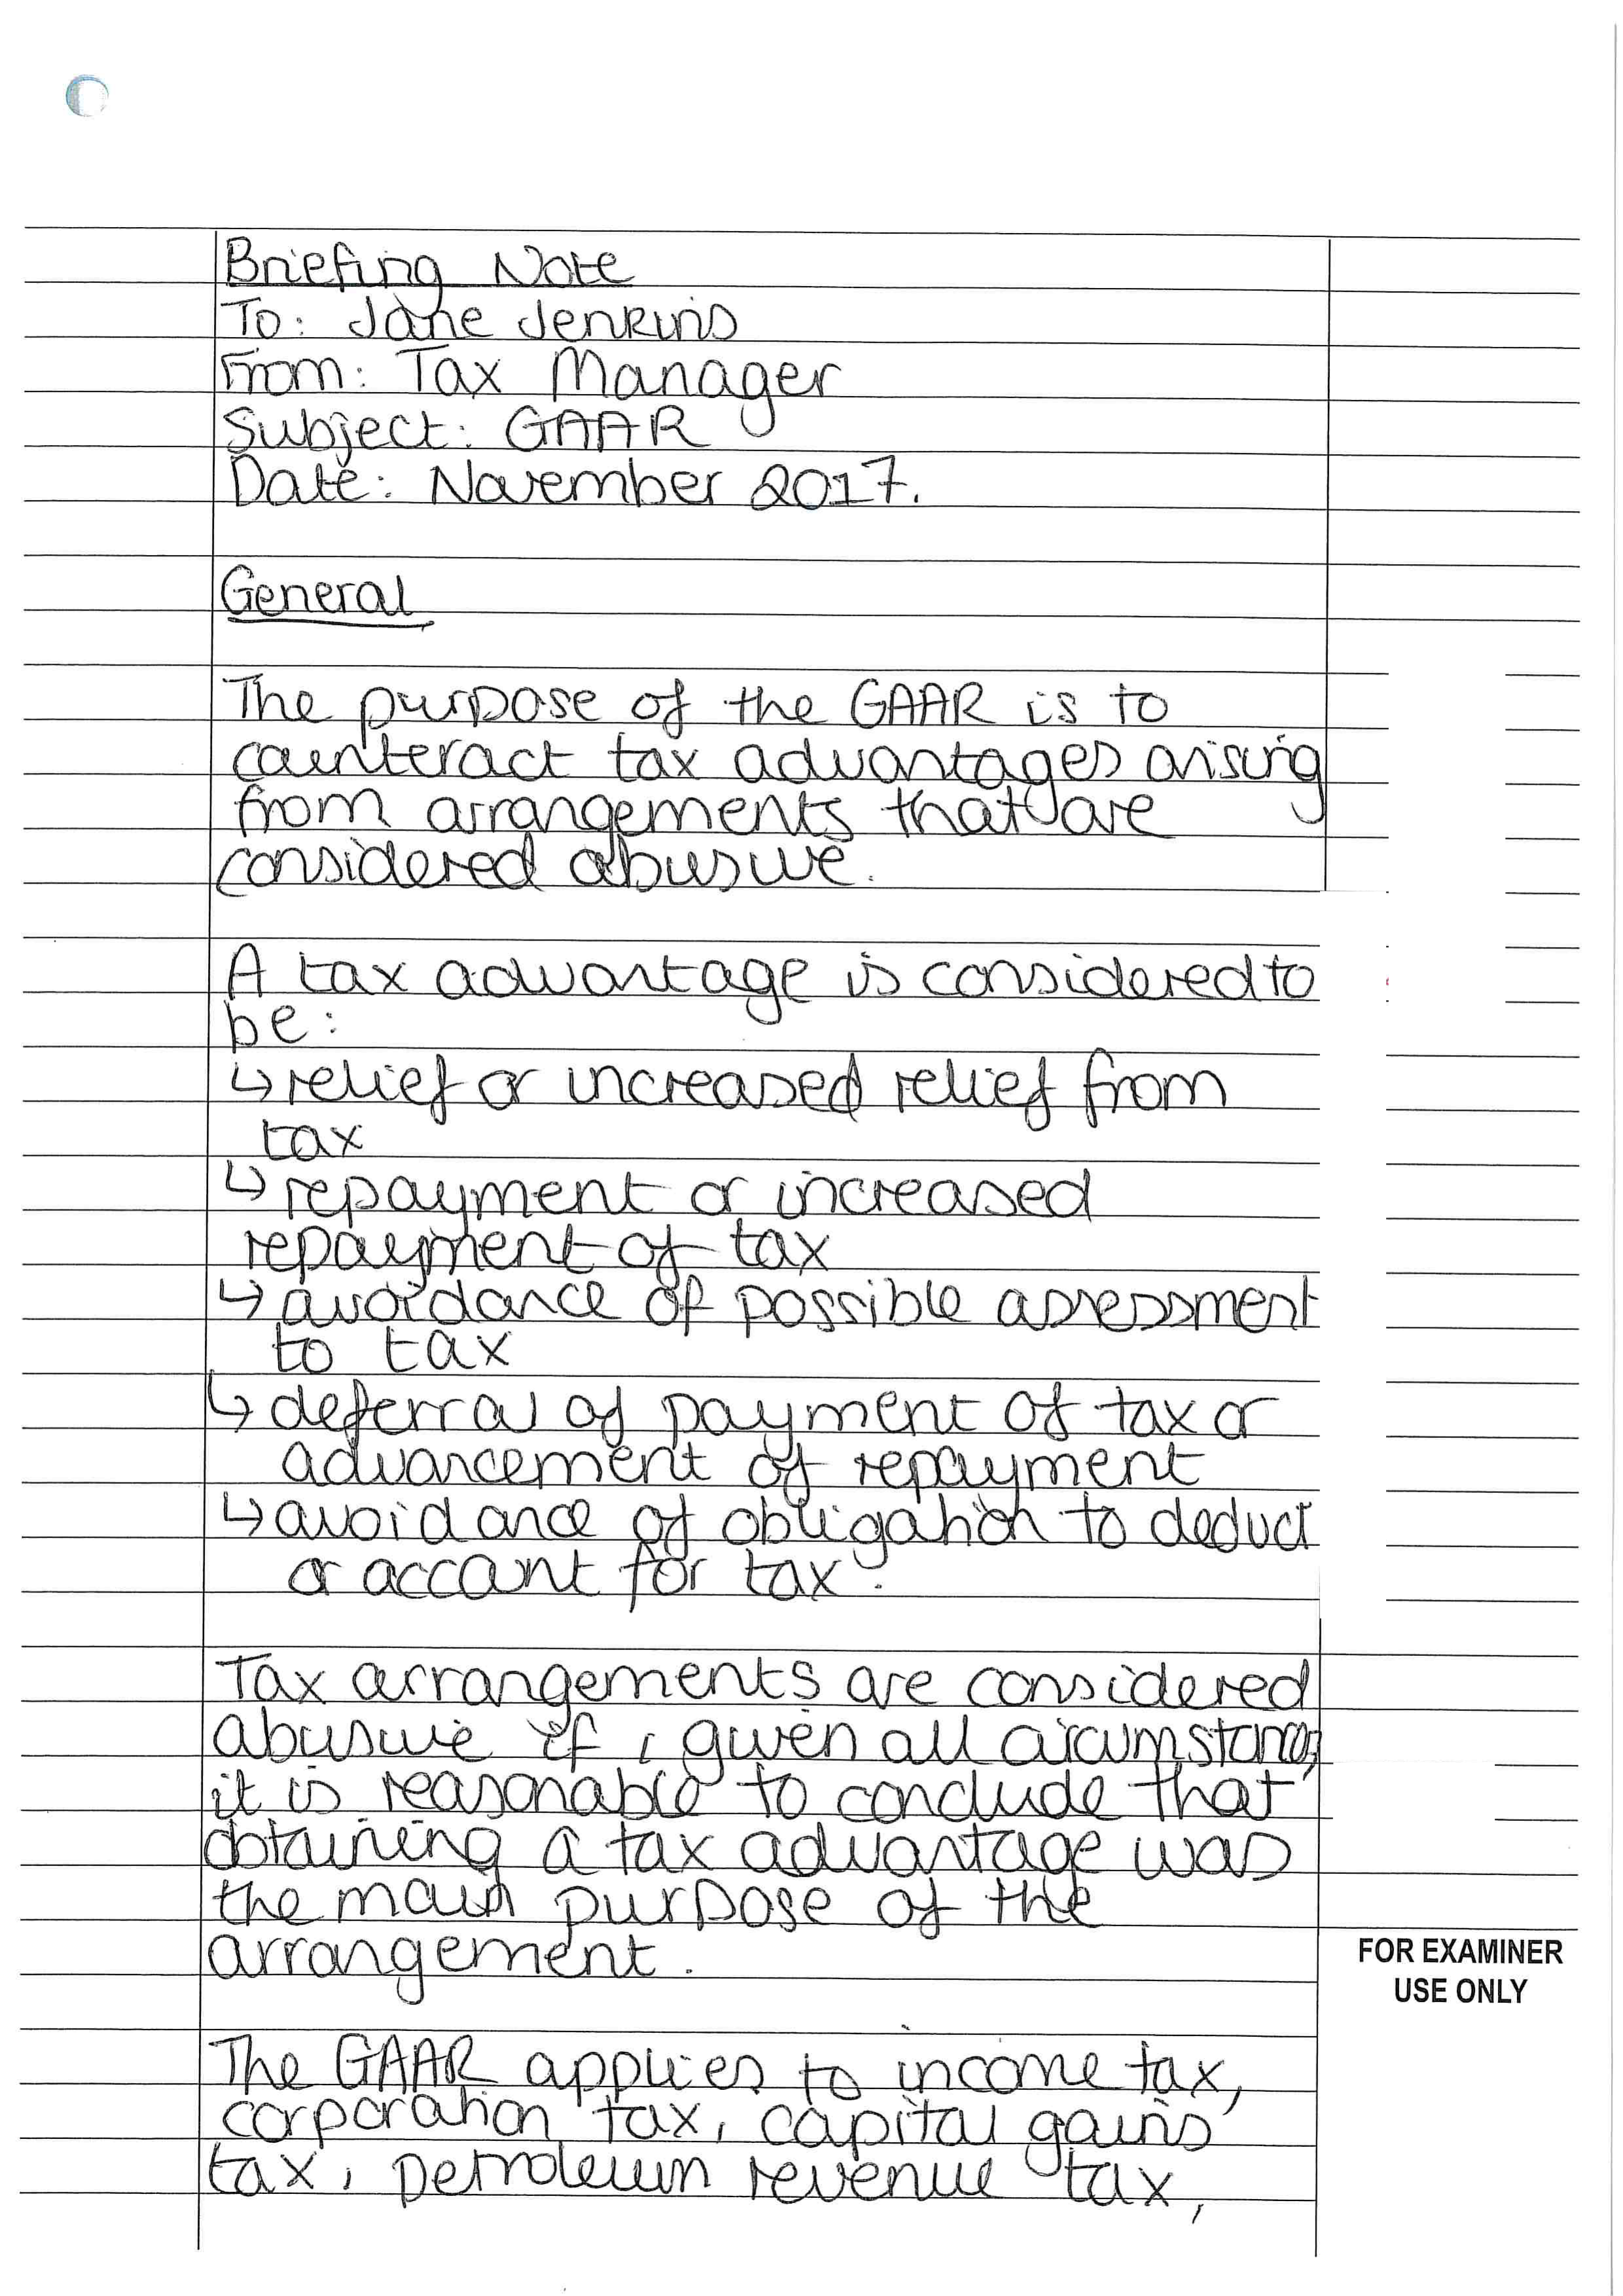 Briefing Note
To: Jane Jenkins
From: Tax Manager
Subject: GAAR
Date: November 2017.
General
The purpose of the GAAR is to
counteract tax advantages arising
from arrangements that are
considered abusive.
A tax advantage is considered to
be:
↳ relief or increased relief from
tax
↳ repayment or increased
repayment of tax
↳ avoidance of possible assessment
to tax
↳ deferral of payment of tax or
advancement of repayment
↳ avoidance of obligation to deduct
or account for tax.
Tax arrangements are considered
abusive if, given all circumstances,
it is reasonable to conclude that
obtaining a tax advantage was
the main purpose of the
arrangement.
FOR EXAMINER
USE ONLY
The GAAR applies to income tax,
corporation tax, capital gains
tax, petroleum revenue tax,